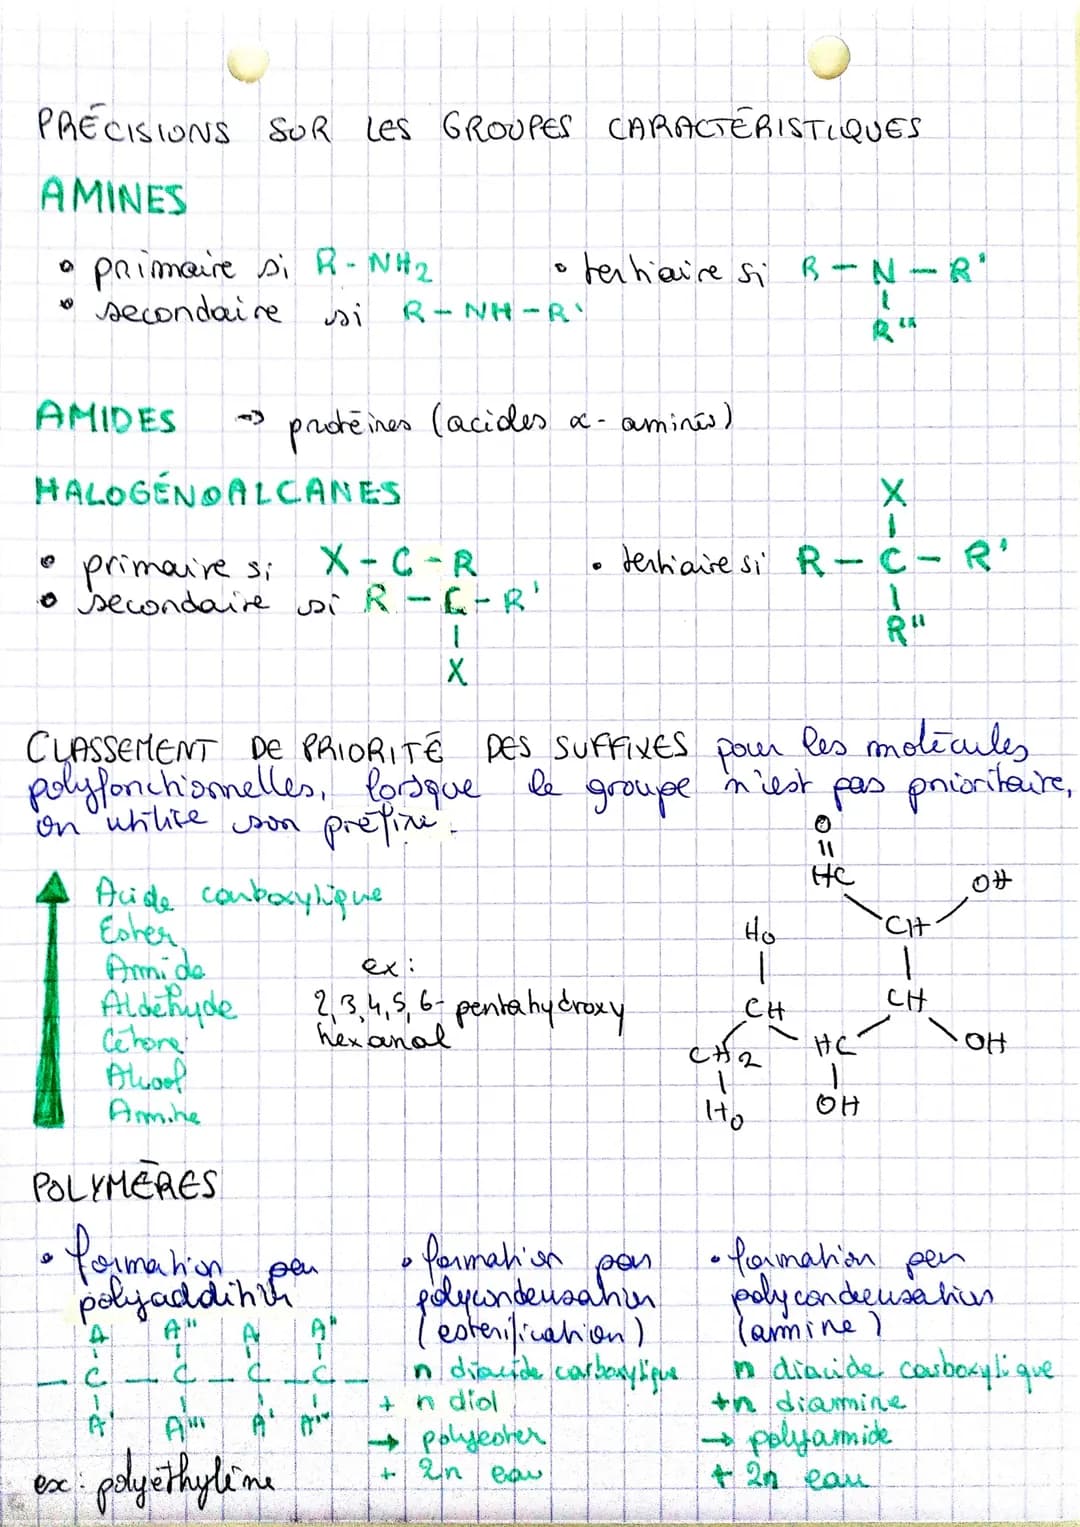 PRÉCISIONS SUR LES GROUPES CARACTÉRISTIQUES
AMINES
• primaire si R-NH2
• secondaire si R-NH-R'
• tertiaire si R-N-R'
R'''
AMIDES → protéines (acides α-aminés)
HALOGÉNOALCANES
• primaire si X-C-R
• secondaire si R-C-R'
X
X
• tertiaire si R-C-R'
R''
CLASSEMENT DE PRIORITÉ DES SUFFIXES pour les molécules
polyfonctionnelles, lorsque le groupe n'est pas prioritaire,
on utilise son préfixe.
Acide carboxylique
Ester
Amide
Aldéhyde
Cétone
Alcool
Amine
ex:
2,3,4,5,6-pentahydroxy
hexanal
O
HC
OH
CH
HO
CH
CH
HC
OH
CH2
HO
OH
POLYMÈRES
• formation par
polyaddition
A A'' A A''
-C-C-C-C-
A' A''' A' A'''
ex: polyéthylène
• formation par
polycondensation
(estérification)
n diacide carboxylique
+ n diol
→ polyester
+ 2n eau
• formation par
polycondensation
(amine)
n diacide carboxylique
+n diamine
→ polyamide
+ 2n eau